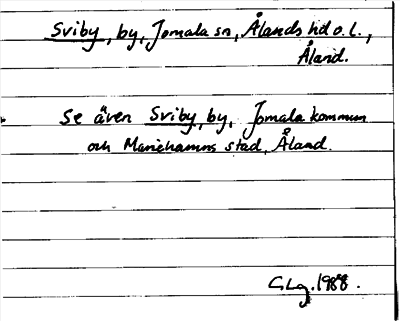 Sviby, by, Jomala sn, Ålands hd o. l.,
Åland.
Se även Sviby, by, Jomala kommun
och Mariehamns stad, Åland.
CLg. 1988.